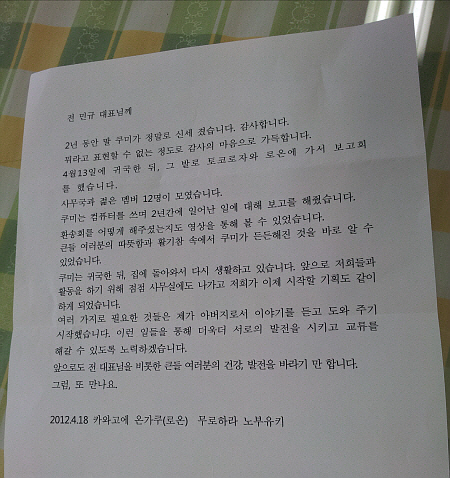 전 민규 대표님께
2년 동안 말 쿠미가 정말로 신세 졌습니다. 감사합니다.
뭐라고 표현할 수 없는 정도로 감사의 마음으로 가득합니다.
4월13일에 귀국한 뒤, 그 발로 토코로자와 로온에 가서 보고회
를 했습니다.
사무국과 젊은 멤버 12명이 모였습니다.
쿠미는 컴퓨터를 쓰며 2년간에 일어난 일에 대해 보고를 해줬습니다.
환송회를 어떻게 해주셨는지도 영상을 통해 볼 수 있었습니다.
큰들 여러분의 따뜻함과 활기참 속에서 쿠미가 든든해진 것을 바로 알 수
있었습니다.
쿠미는 귀국한 뒤, 집에 돌아와서 다시 생활하고 있습니다. 앞으로 저희들과
활동을 하기 위해 점점 사무실에도 나가고 저희가 이제 시작할 기획도 같이
하게 되었습니다.
여러 가지로 필요한 것들은 제가 아버지로서 이야기를 듣고 도와 주기
시작했습니다. 이런 일들을 통해 더욱더 서로의 발전을 시키고 교류를
해갈 수 있도록 노력하겠습니다.
앞으로도 전 대표님을 비롯한 큰들 여러분의 건강, 발전을 바라기 만 합니다.
그럼, 또 만나요.
2012.4.18 카와고에 온가루(로온) 무로하라 노부유키